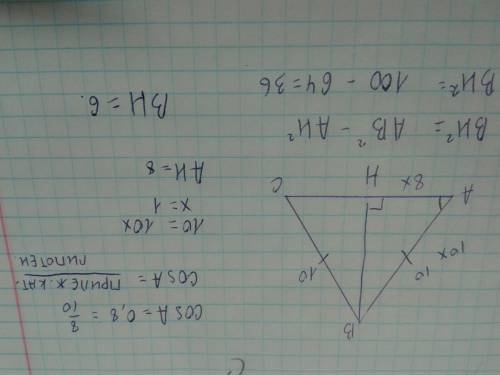 B
10
10x
10
A
8x
H
C
cos A = 0,8 = 8/10
cos A = ПРИЛЕЖ.КАТ. / ГИПОТЕН
10 = 10x
x = 1
AH = 8
BH² = AB² - AH²
BH² = 100 - 64 = 36
BH = 6.